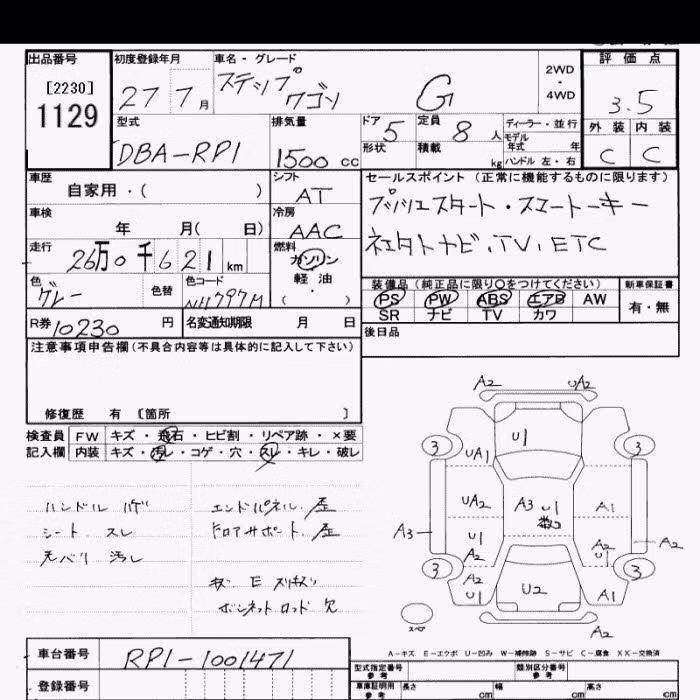 出品番号
[2230]
1129
初度登録年月
27 7月
車名・グレード
ステップ
ワゴン
G
2WD
・
4WD
評価点
3.5
外装 内装
C C
型式
DBA-RP1
排気量
1500 cc
ドア 5
形状
定員 8 人
積載 kg
ディーラー・並行
モデル
年式 年
ハンドル 左・右
車歴
自家用・( )
シフト
AT
車検
年 月( 日)
冷房
AAC
走行
26万0千621 km
燃料
ガソリン
軽油
・
( )
色
グレー
色替
色コード
NH797M
R券 10230 円
名変通知期限 月 日
セールスポイント (正常に機能するものに限ります)
プッシュスタート・スマートーキー
ネェタトナビ、TV、ETC
装備品 (純正品に限り○をつけてください)
PS PW ABS エアB AW
SR ナビ TV カワ
新車保証書
有・無
後日品
注意事項申告欄(不具合内容等は具体的に記入して下さい)
修復歴 有 〔箇所 〕
検査員 FW キズ・飛石・ヒビ割・リペア跡・×要
記入欄 内装 キズ・汚レ・コゲ・穴・スレ・キレ・破レ
ハンドル ハゲ
シート、スレ
天バリ 汚レ
エンドパネル、歪
ドロアサポート、歪
ボンネットロッド欠
A2 UA2
U1
3 3
UA1
UA2 A3 U1 A1
A3 U1 A2
A2
A2
U1
3 3
A2
U1 U2 A1
A2
スペア
A-キズ E-エクボ U-凹み W-補修跡 S-サビ C-腐食 XX-交換済
車台番号 RP1-1001471
登録番号
型式指定番号
参考
類別区分番号
参考
車庫証明用
参考
長さ cm 幅 cm 高さ cm